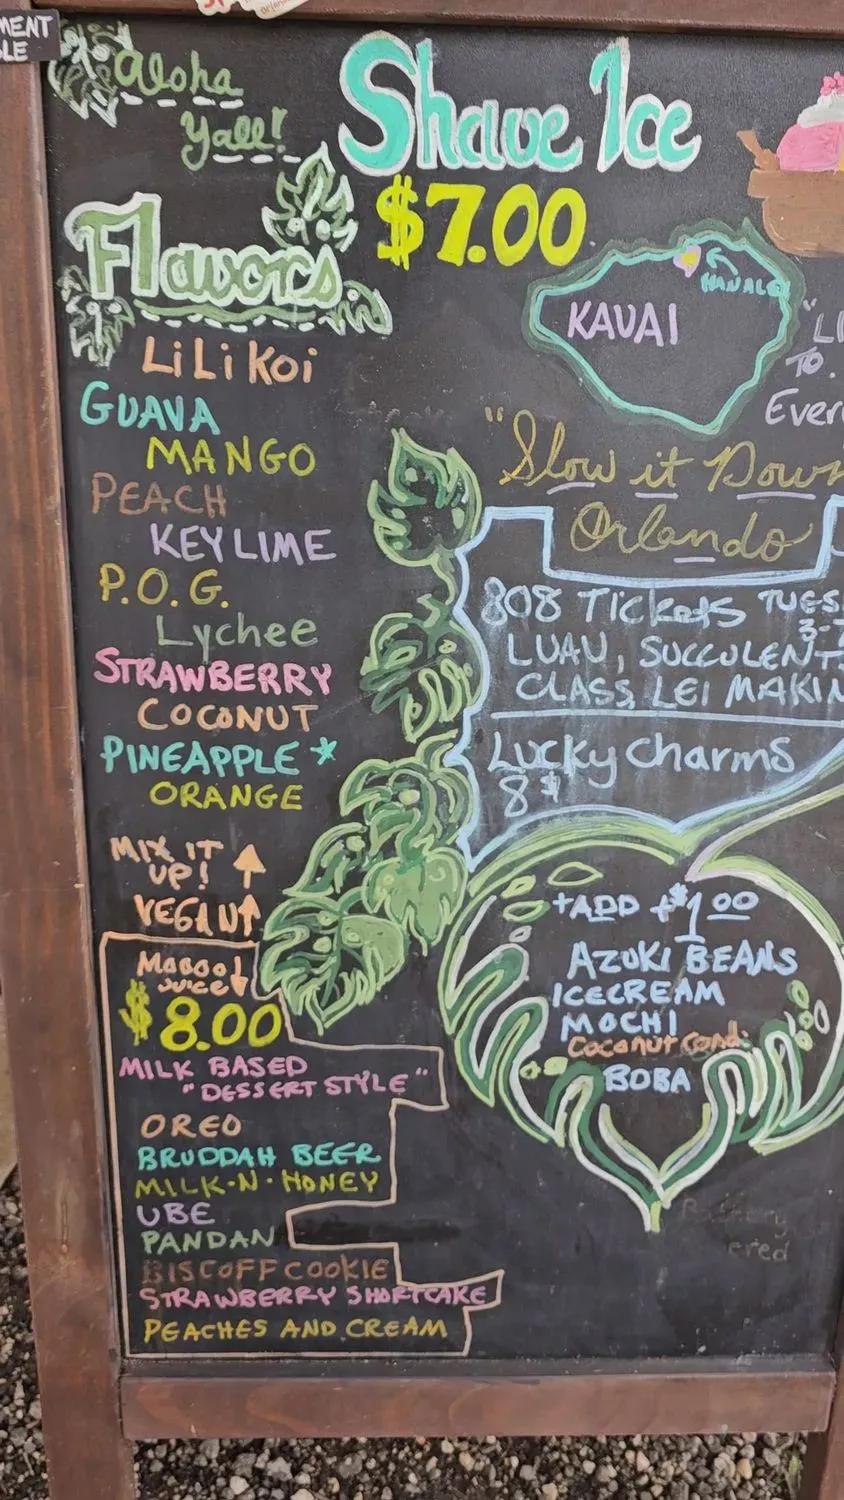 MENT
LE
Aloha
Yall!
Shave Ice
$7.00
Flavors
LiLikoi
GUAVA
MANGO
PEACH
KEY LIME
P.O.G.
Lychee
STRAWBERRY
COCONUT
PINEAPPLE *
ORANGE
MIX IT
UP!
VEGAN
Moooo
JUICE
$8.00
MILK BASED
"DESSERT STYLE"
OREO
BRUDDAH BEER
MILK·N·HONEY
UBE
PANDAN
BISCOFF COOKIE
STRAWBERRY SHORTCAKE
PEACHES AND CREAM
HANALEI
KAUAI
"LI
TO.
Ever
"Slow it Down
Orlando
808 Tickets TUES
3-7
LUAU, SUCCULENT
CLASS, LEI MAKIN
Lucky Charms
8$
+ADD +$1.00
AZUKI BEANS
ICECREAM
MOCHI
Coconut Cond.
BOBA
ered